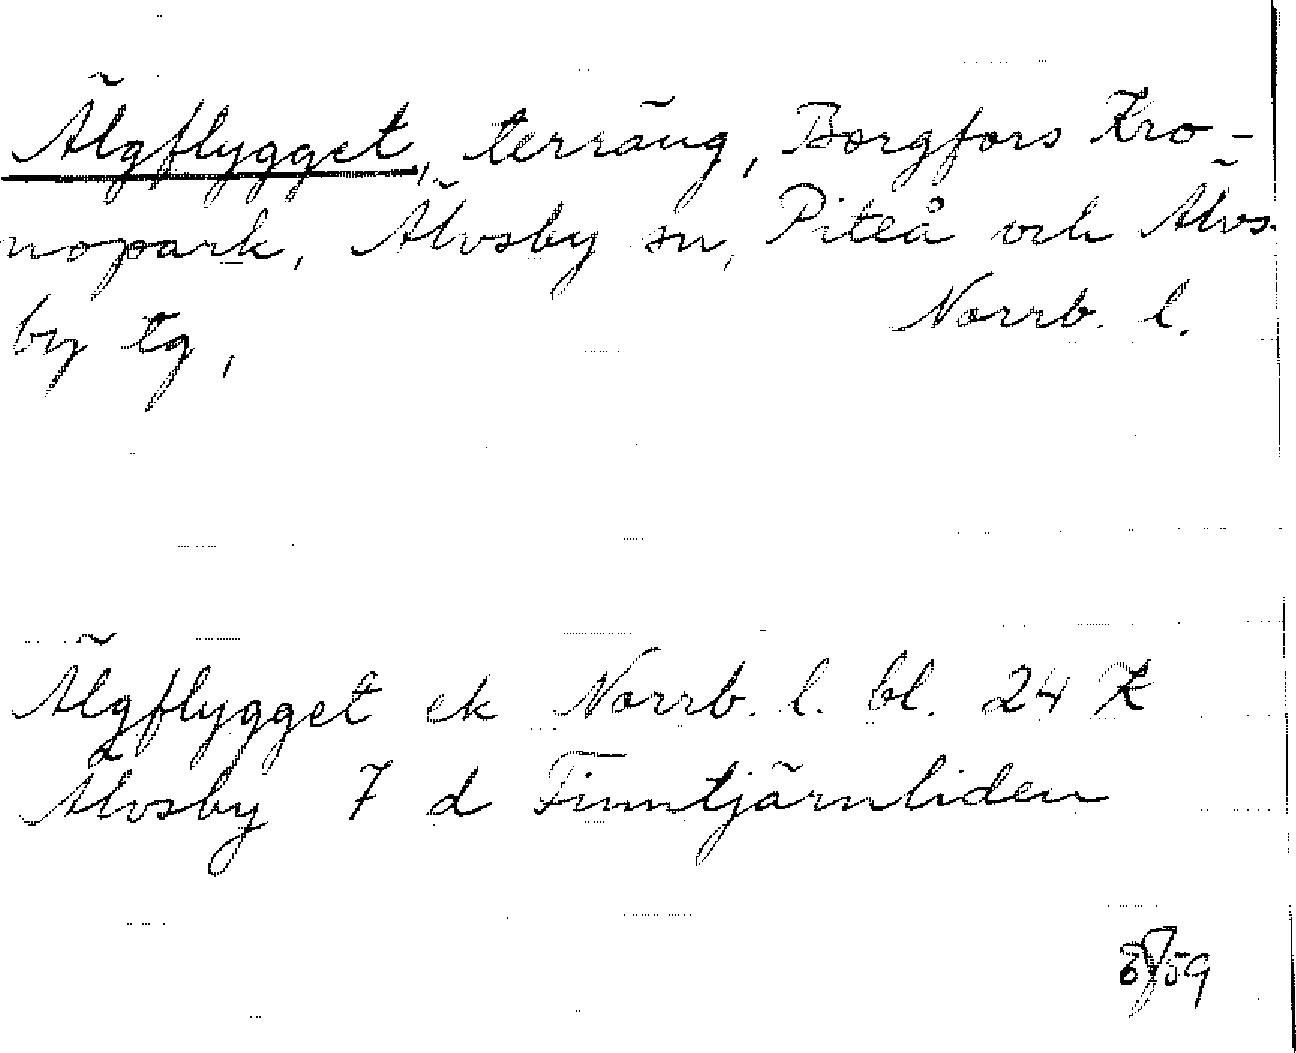 Älgflygget, terräng, Borgfors Kro-
nopark, Älvsby sn, Piteå och Älvs-
by tg, Norrb. l.
Älgflygget ek Norrb. l. bl. 24 K
Älvsby 7 d Finntjärnliden